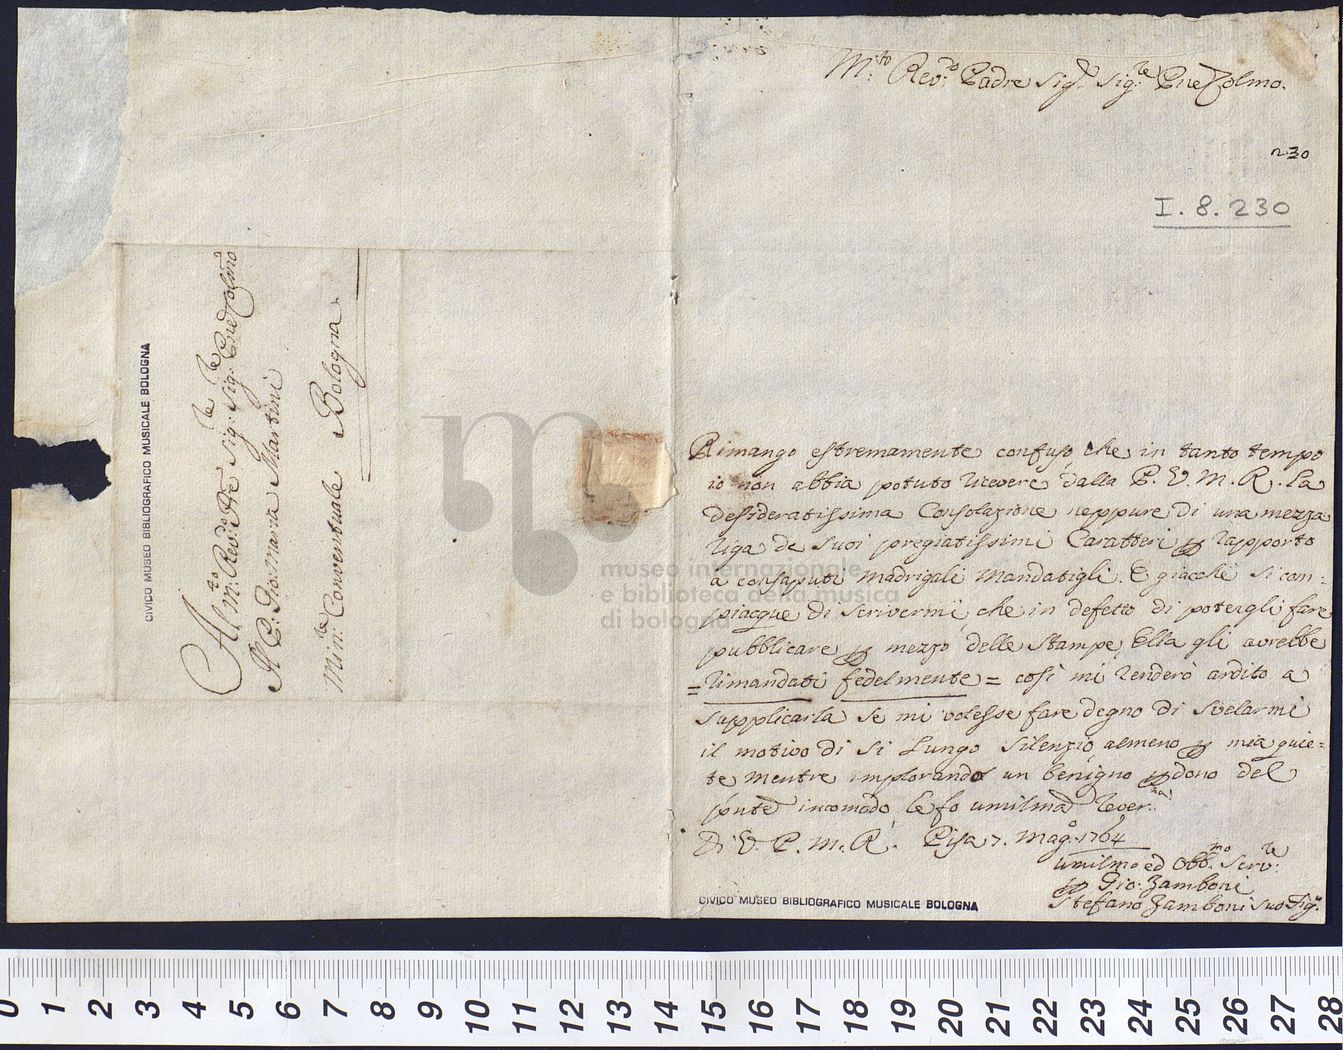 M.to Rev.do Padre Sig.r Sig.re P.ne Colmo.
230
I. 8. 230
Rimango estremamente confuso, che in tanto tempo
io non abbia potuto ricevere dalla P. V. M. R. la
desideratissima Consolazione neppure di una mezza
riga de Suoi pregiatissimi Caratteri p rapporto
a consaputi Madrigali Mandatigli. E giacche si com-
piacque di Scrivermi, che in defetto di potergli fare
pubblicare p mezzo delle Stampe, Ella gli avrebbe
= rimandati fedelmente = così mi renderò ardito a
supplicarla se mi volesse fare degno di Svelarmi
il motivo di Sì Lungo Silenzio almeno p mia quie=
te mentre implorando un benigno pdono del
pnte incomodo le fo umilma rever.za
Di V. P. M. R. Pisa 7. Mago. 1764
Umilmo ed Obb.mo Serv.re
p Gio. Zamboni
Stefano Zamboni suo Figo.
CIVICO MUSEO BIBLIOGRAFICO MUSICALE BOLOGNA
CIVICO MUSEO BIBLIOGRAFICO MUSICALE BOLOGNA
Al m.to Rev.do Pre Sig.re Sig.re P.ne Colmo
Il P. Giomaria Martini
Min.re Conventuale Bologna
museo internazionale
e biblioteca della musica
di bologna
0 1 2 3 4 5 6 7 8 9 10 11 12 13 14 15 16 17 18 19 20 21 22 23 24 25 26 27 28